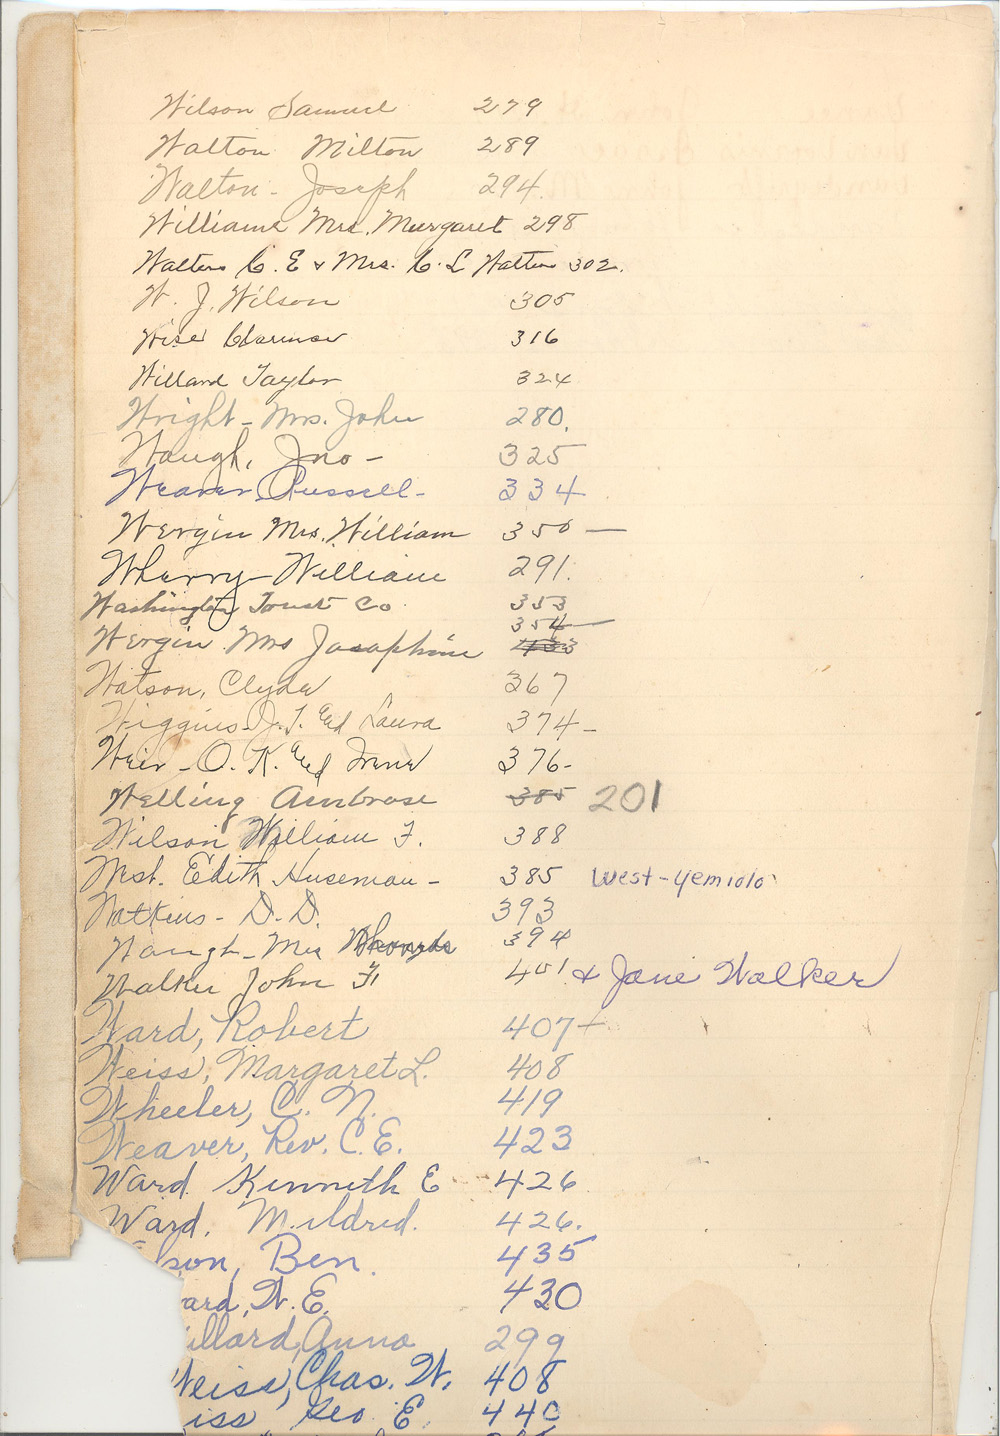 Wilson Samuel 279
Walton Milton 289
Walton - Joseph 294.
Williams Mrs. Margaret 298
Walters C. E & Mrs. C. L Walters 302.
W. J. Wilson 305
Wise 316
Willard Taylor 324
Wright - Mrs. John 280.
Waugh, Jno - 325
Weaver, Russell - 334
Wergin Mrs. William 350 —
Wherry William 291.
Washington Trust Co 353
354 —
Wergin Mrs Josephine 433
Watson, Clyde 367
Wiggins J. T. and Laura 374 -
Weir - O. K. and Irene 376 -
Welling Ambrose 385 201
Wilson William F. 388
West. Edith Huseman - 385 West - Yemiolo
Watkins - D. D. 393
Waugh - Mrs 394
Walker John F 401. & Jane Walker
Ward, Robert 407 -
Weiss, Margaret L. 408
Wheeler, C. N. 419
Weaver, Rev. C. E. 423
Ward Kenneth E 426
Ward. Mildred. 426.
son, Ben. 435
ard, W. E. 430
illard, Anna 299
Weiss, Chas. W. 408
iss Geo E. 440